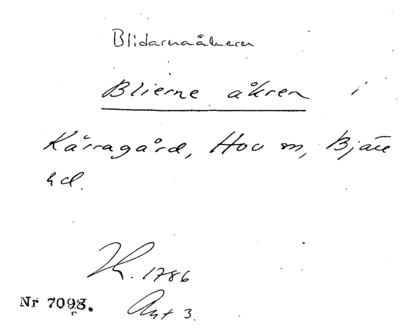 Blidarnaåkern
Blierne åkren i
Kärragård, Hov sn, Bjäre
hd.
Lh. 1786
Nr 7098. Akt 3.